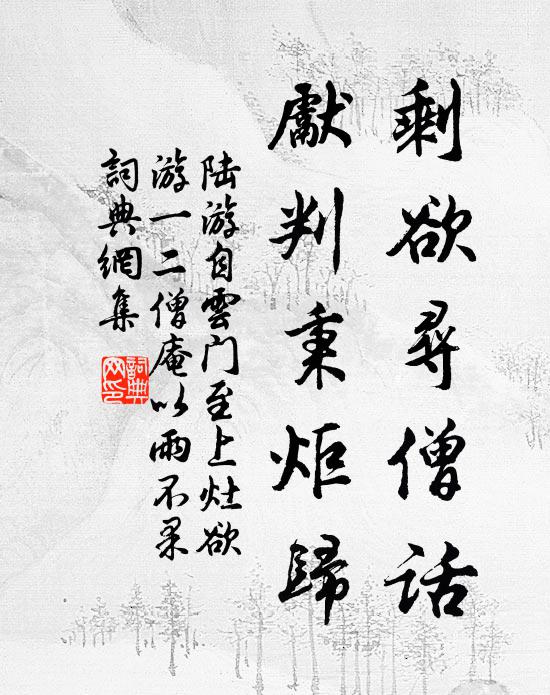 剩欲尋僧話
獻判秉炬歸
陆游自雲门至上灶欲
游一二僧庵以雨不果
詞典網集
詞典
网印